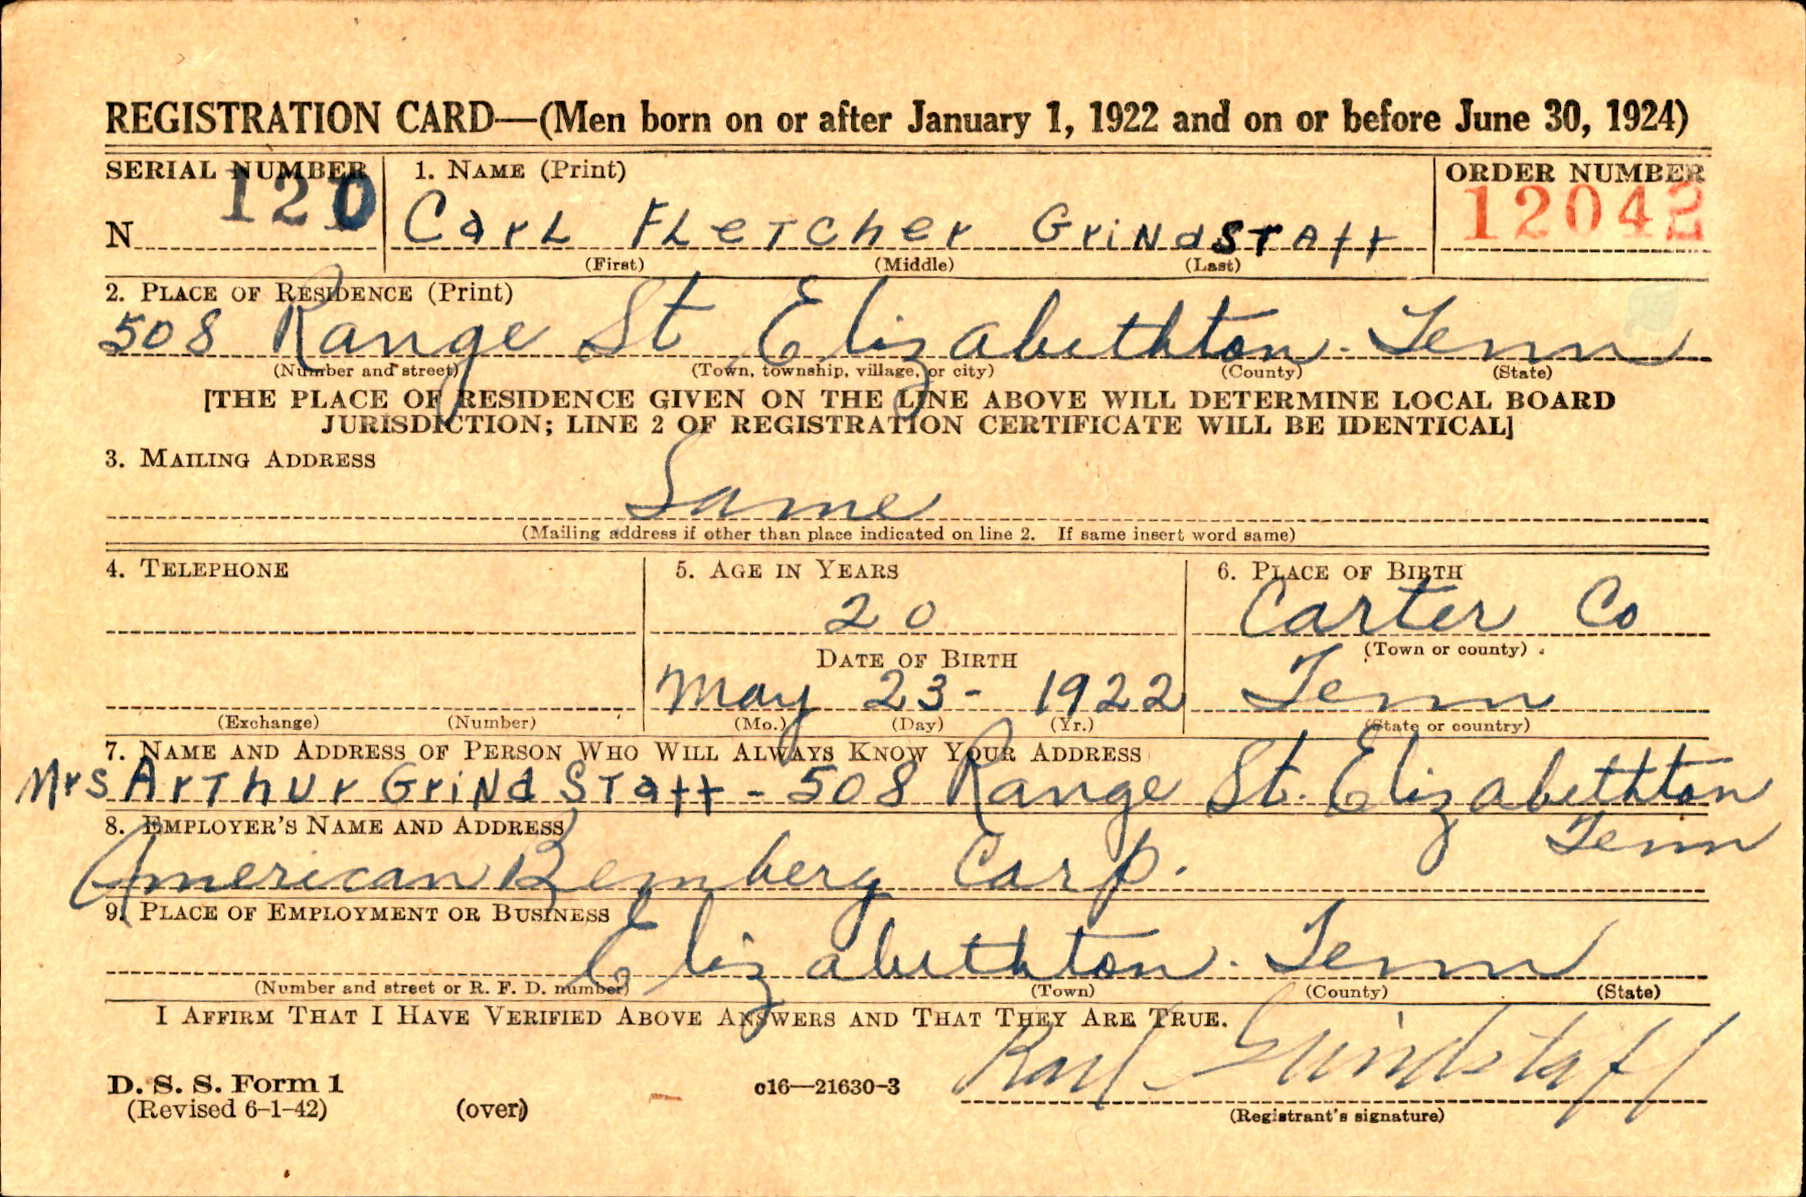 REGISTRATION CARD—(Men born on or after January 1, 1922 and on or before June 30, 1924)
SERIAL NUMBER 1. NAME (Print) ORDER NUMBER
N 120 Carl Fletcher Grindstaff 12042
(First) (Middle) (Last)
2. PLACE OF RESIDENCE (Print)
508 Range St Elizabethton. Tenn
(Number and street) (Town, township, village, or city) (County) (State)
[THE PLACE OF RESIDENCE GIVEN ON THE LINE ABOVE WILL DETERMINE LOCAL BOARD
JURISDICTION; LINE 2 OF REGISTRATION CERTIFICATE WILL BE IDENTICAL]
3. MAILING ADDRESS
Same
(Mailing address if other than place indicated on line 2. If same insert word same)
4. TELEPHONE 5. AGE IN YEARS 6. PLACE OF BIRTH
20 Carter Co
DATE OF BIRTH (Town or county)
May 23- 1922 Tenn
(Exchange) (Number) (Mo.) (Day) (Yr.) (State or country)
7. NAME AND ADDRESS OF PERSON WHO WILL ALWAYS KNOW YOUR ADDRESS
Mrs Arthur Grindstaff - 508 Range St. Elizabethton
8. EMPLOYER'S NAME AND ADDRESS Tenn
American Bemberg Corp.
9. PLACE OF EMPLOYMENT OR BUSINESS
Elizabethton. Tenn
(Number and street or R. F. D. number) (Town) (County) (State)
I AFFIRM THAT I HAVE VERIFIED ABOVE ANSWERS AND THAT THEY ARE TRUE.
D. S. S. Form 1 c16—21630-3 Karl Grindstaff
(Revised 6-1-42) (over) (Registrant's signature)